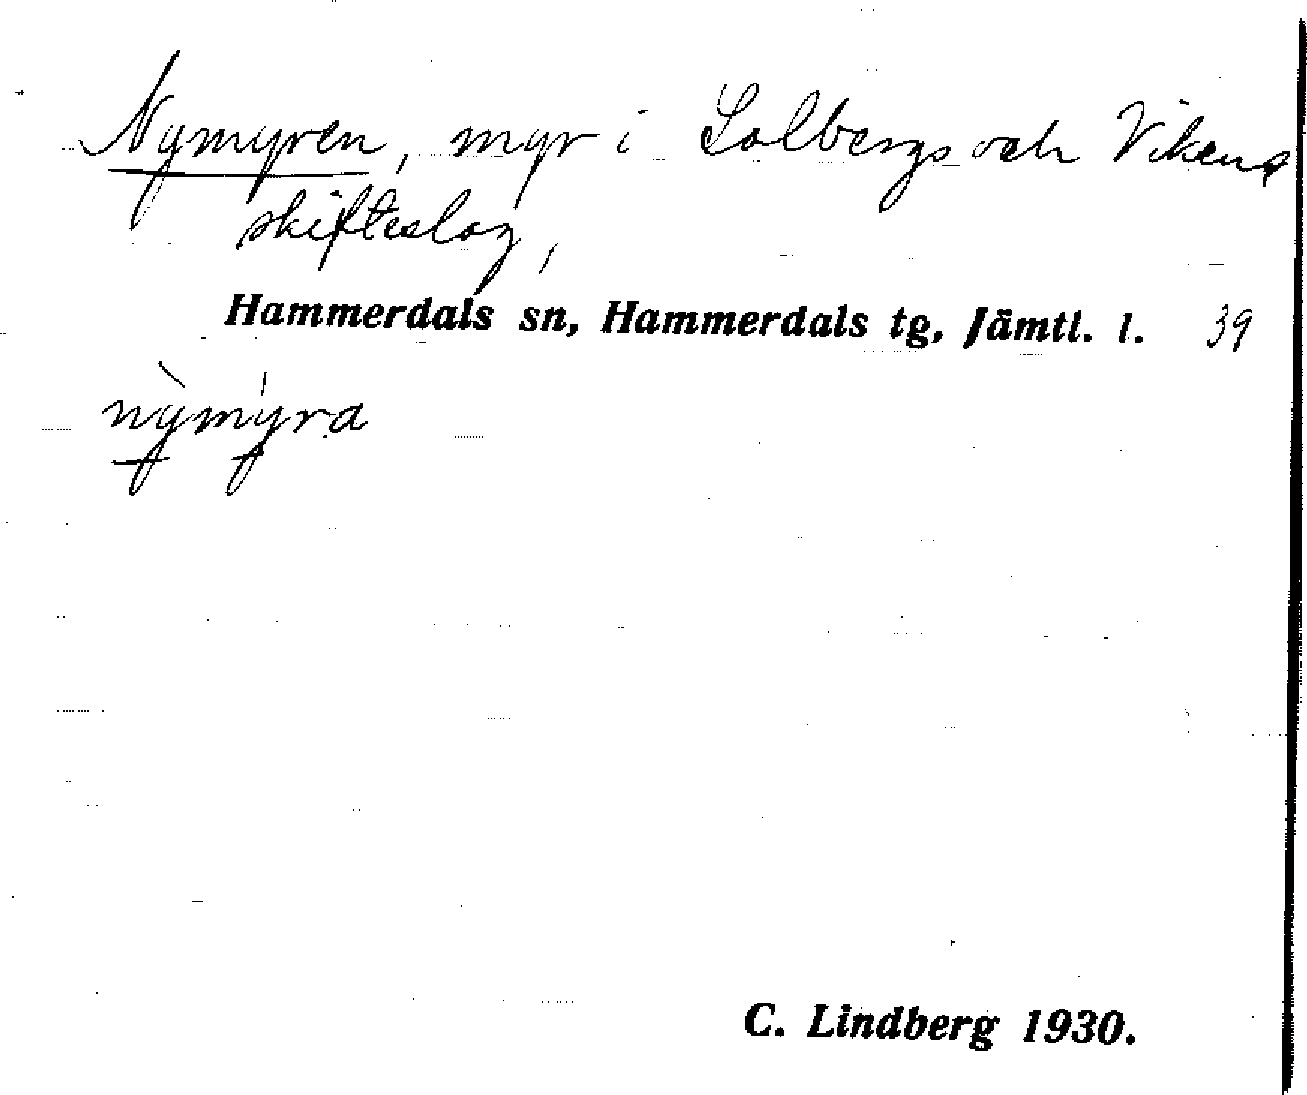 Nymyren, myr i Solbergs och Vikens
skifteslag,
Hammerdals sn, Hammerdals tg, Jämtl. l. 39
nỳmýra
C. Lindberg 1930.